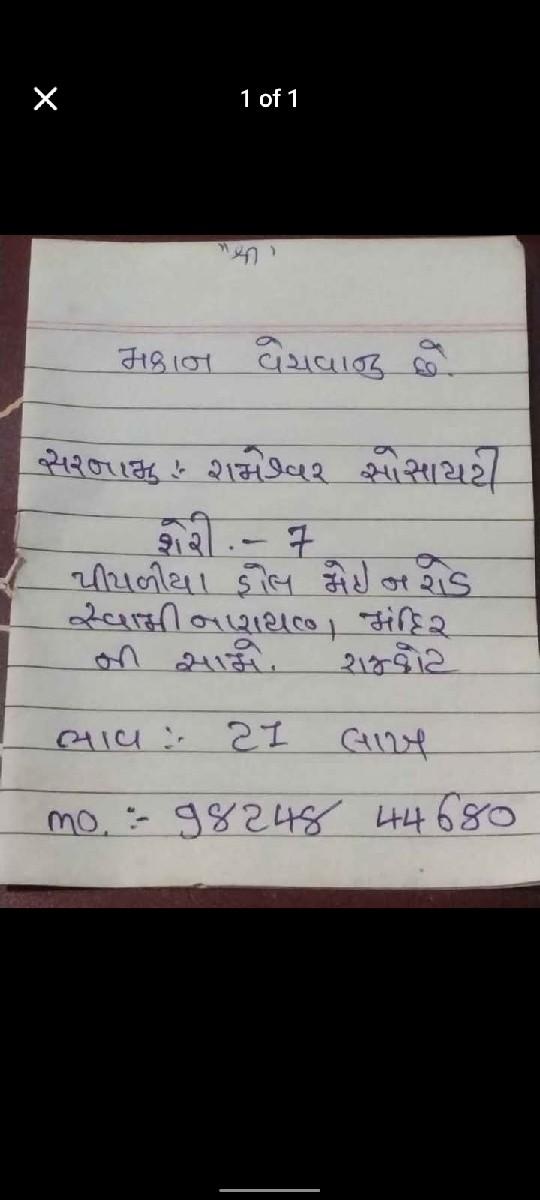 1 of 1
"શ્રી"
મકાન વેચવાનુ છે.
સરનામુ :- રામેશ્વર સોસાયટી
શેરી.- 7
પીપળીયા હોલ મેઇન રોડ
સ્વામીનારાયણ મંદિર
ની સામે. રાજકોટ
ભાવ :- 21 લાખ
mo. :- 98248 44680